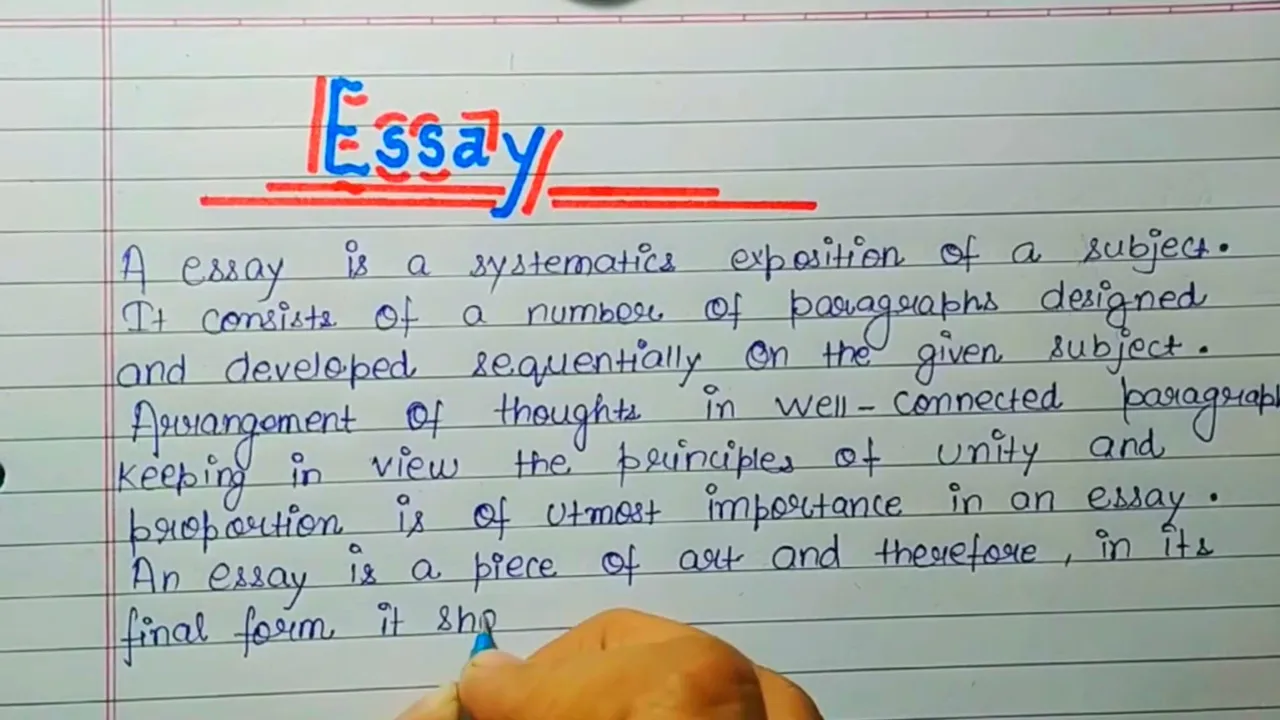 Essay
A essay is a systematics exposition of a subject.
It consists of a number of paragraphs designed
and developed sequentially on the given subject.
Arrangement of thoughts in well-connected paragraph
keeping in view the principles of unity and
proportion is of utmost importance in an essay.
An essay is a piece of art and therefore, in its
final form it sho